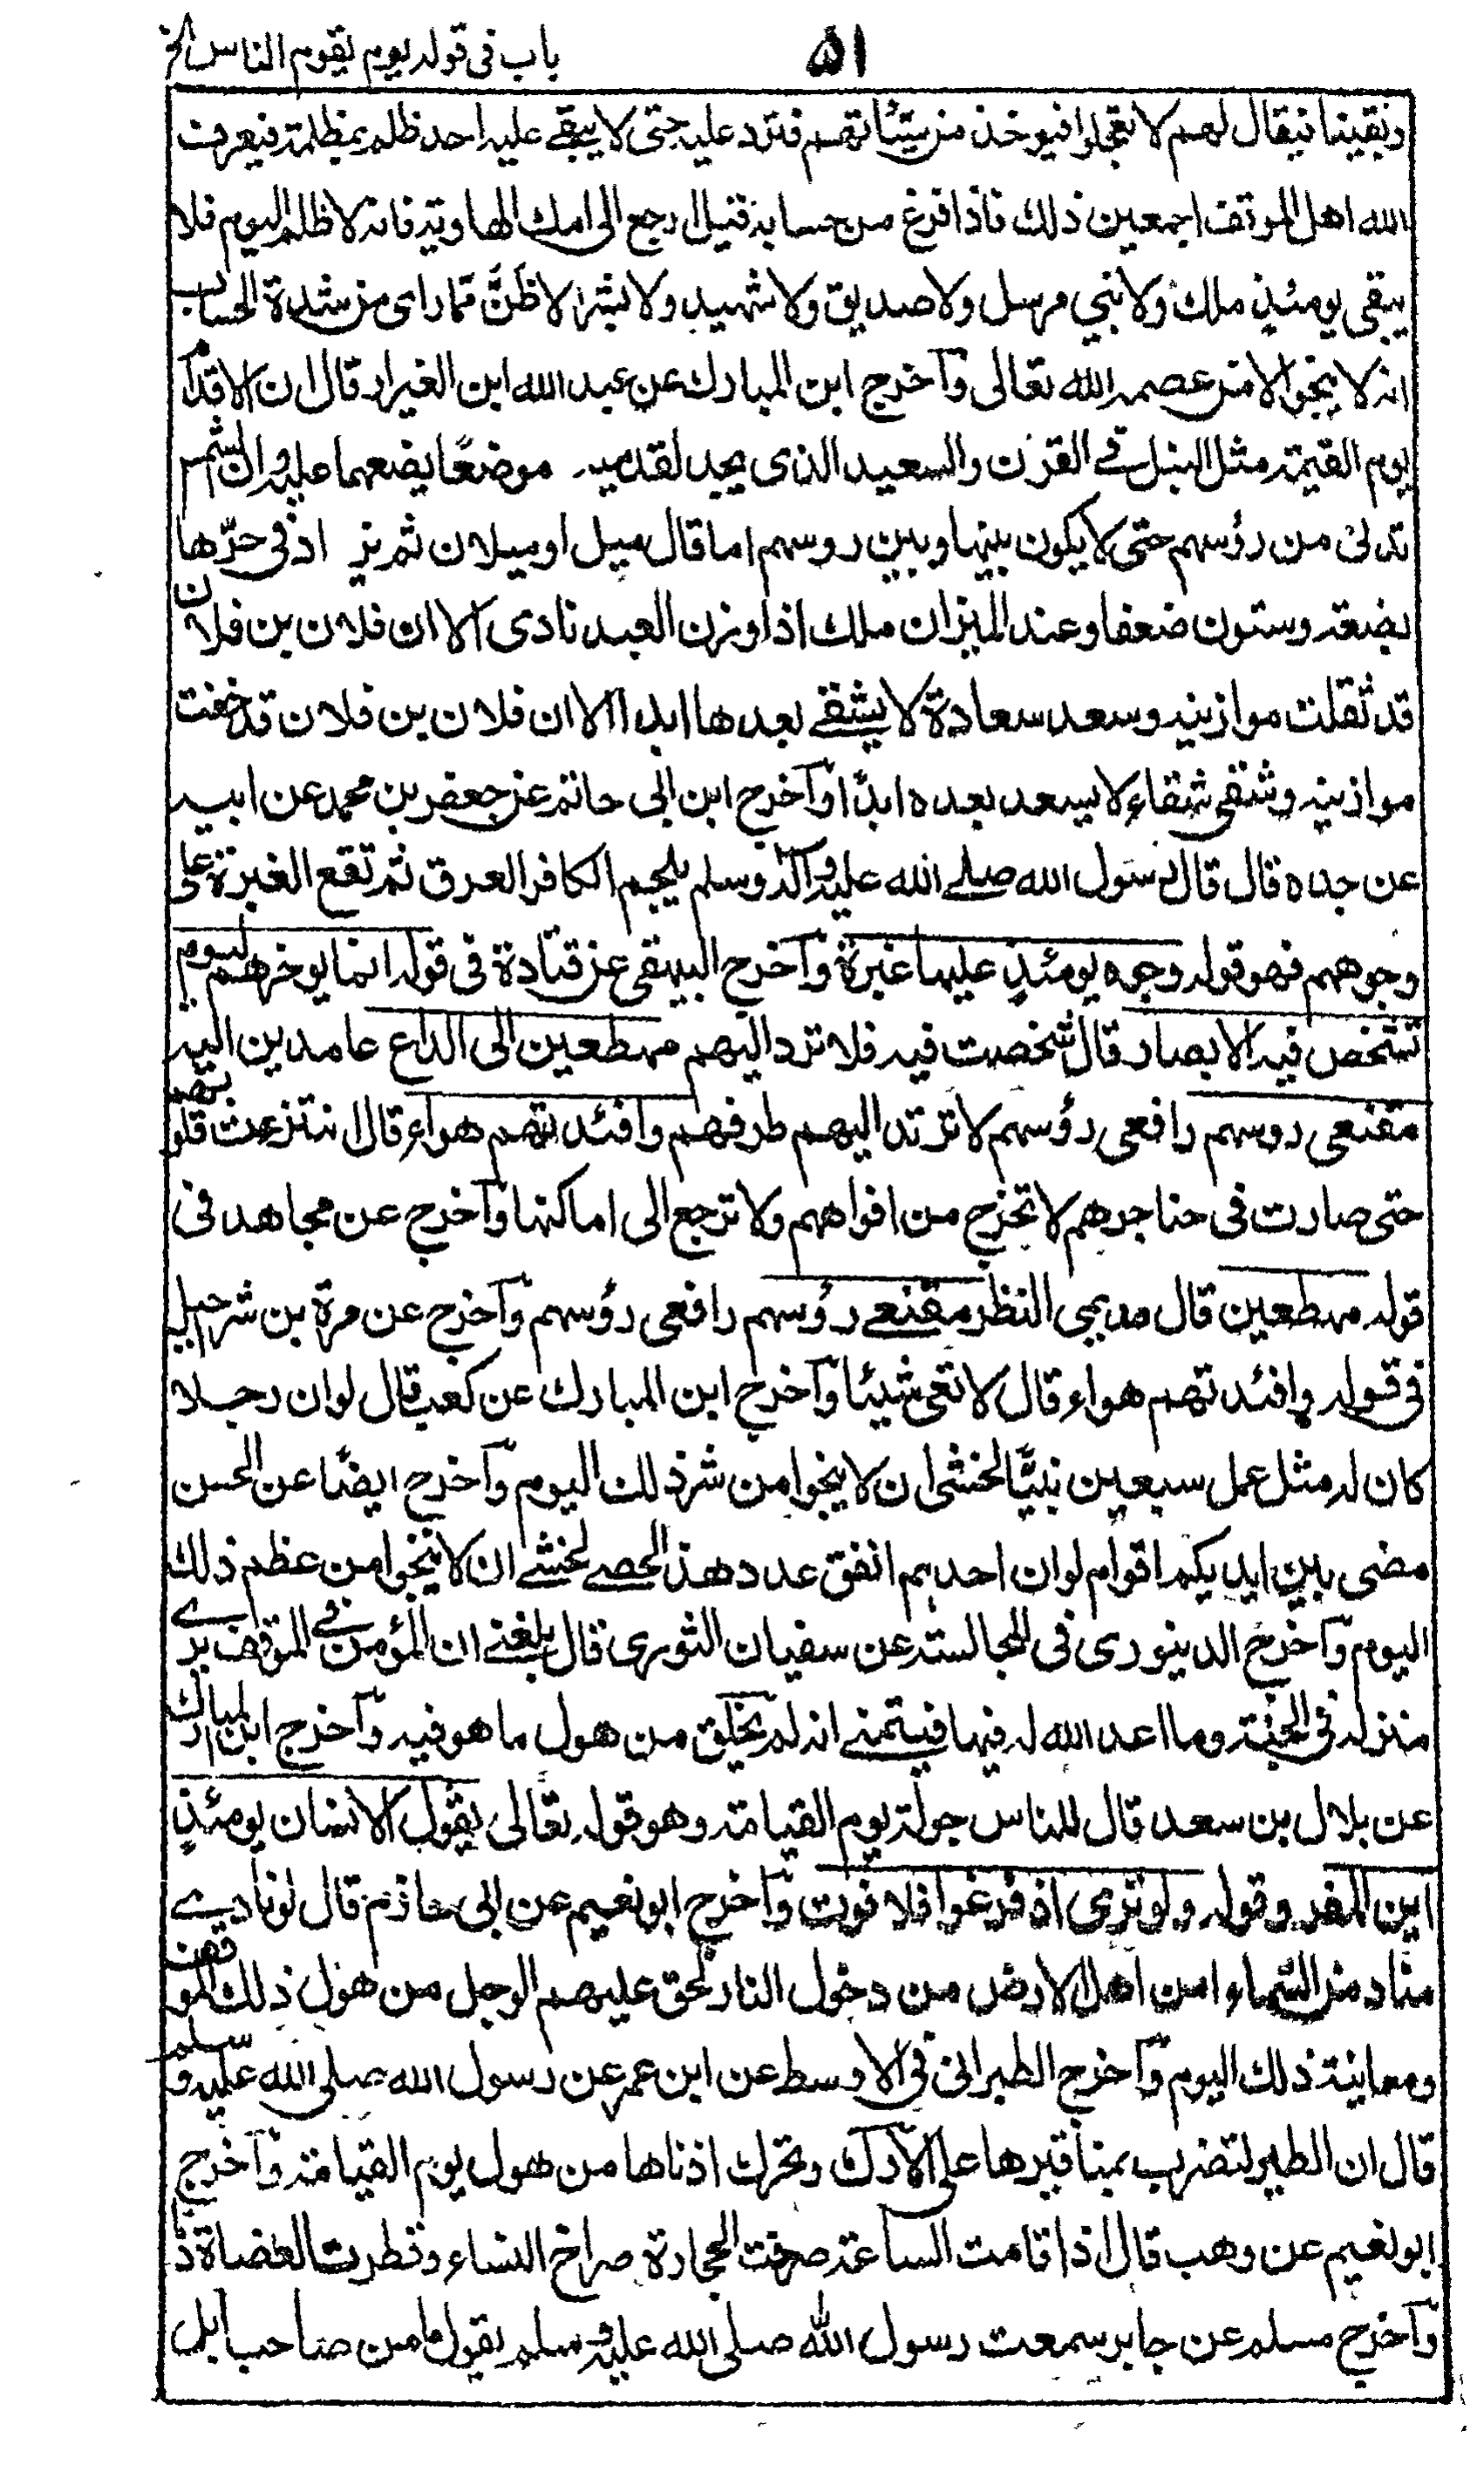 باب فى قوله يوم يقوم الناس الخ
۵۱
وبقينا فيقال لهم لا تعجلوا فيوخذ من سيّئاتهم فترد عليه حتى لا يبقے عليه احد ظلمه بمظلمة فيعرف
الله اهل الموقف اجمعين ذلك فاذا فرغ من حسابه قيل ارجع الى امك الهاوية فانه لا ظلم اليوم فلا
يبقى يومئذٍ ملك ولا نبي مرسل ولا صديق ولا شهيد ولا بشر الا ظَنَّ ممّا راى من شدة الحساب
انه لا ينجو الا من عصمه الله تعالى وآخرج ابن المبارك عن عبد الله ابن الغيرار قال ان الاقدام
يوم القيمة مثل النبل فے القرن والسعيد الذى يجد لقدميه موضعًا يضعهما عليه وان الشمس
تدلى من رؤسهم حتى لا يكون بينها وبين روسهم اما قال ميل او ميلان ثم يز اد فى حرّها
بضعة وستون ضعفا وعند الميزان ملك اذا وزن العبد نادى الا ان فلان بن فلان
قد ثقلت موازينه وسعد سعادة لا يشقے بعدها ابدا الا ان فلان بن فلان قد خفت
موازينه وشقى شقاء لا يسعد بعده ابدًا وآخرج ابن ابى حاتم عن جعفر بن محمد عن ابيه
عن جده قال قال رسول الله صلے الله عليه وآله وسلم يلجم الكافر العرق ثم تقع الغبرة على
وجوههم فهو قوله وجوه يومئذٍ عليها غبرة وآخرج البيهقى عن قتادة فى قوله انما يوخرهم ليوم
تشخص فيه الابصار قال شخصت فيه فلا ترد اليهم مهطعين الى الداع عامدين اليه
مقنعى روسهم رافعى رؤسهم لا ترتد اليهم طرفهم وافئدتهم هواء قال انتزعت قلوبهم
حتى صارت فى حناجرهم لا تخرج من افواههم ولا ترجع الى اماكنها وآخرج عن مجاهد فى
قوله مهطعين قال مديمى النظر مقنعے رؤسهم رافعى رؤسهم وآخرج عن مرة بن شرحبيل
فى قوله وافئدتهم هواء قال لا تعى شيئا وآخرج ابن المبارك عن كعب قال لو ان رجلا
كان له مثل عمل سبعين نبيًّا لخشى ان لا ينجوا من شر ذلك اليوم وآخرج ايضًا عن الحسن
مضى بين ايديكم اقوام لو ان احدهم انفق عدد هذ الحصے لخشے ان لا ينجوا من عظم ذلك
اليوم وآخرج الدينورى فى المجالسة عن سفيان الثورى قال بلغنے ان المؤمن فے الموقف يرے
منزله فى الجنة وما اعد الله له فيها فيتمنے انه لم يخلق من هول ما هو فيه وآخرج ابن المبارك
عن بلال بن سعد قال للناس جولة يوم القيامة وهو قوله تعالى يقول الانسان يومئذٍ
اين المفر وقوله ولو ترى اذ فزعوا فلا فوت وآخرج ابو نعيم عن ابى حازم قال لو نادے
مناد من السّماء امن اهل الارض من دخول النار لحق عليهم الوجل من هول ذلك الموقف
ومعاينة ذلك اليوم وآخرج الطبرانى فى الاوسط عن ابن عمر عن رسول الله صلى الله عليه وسلم
قال ان الطير لتضرب بمناقيرها على الارك وتحرك اذنابها من هول يوم القيامة وآخرج
ابو نعيم عن وهب قال اذا قامت الساعة صرخت الحجارة صراخ النساء وقطرت العضاة دما
وآخرج مسلم عن جابر سمعت رسول الله صلى الله عليه وسلم يقول ما من صاحب ابل